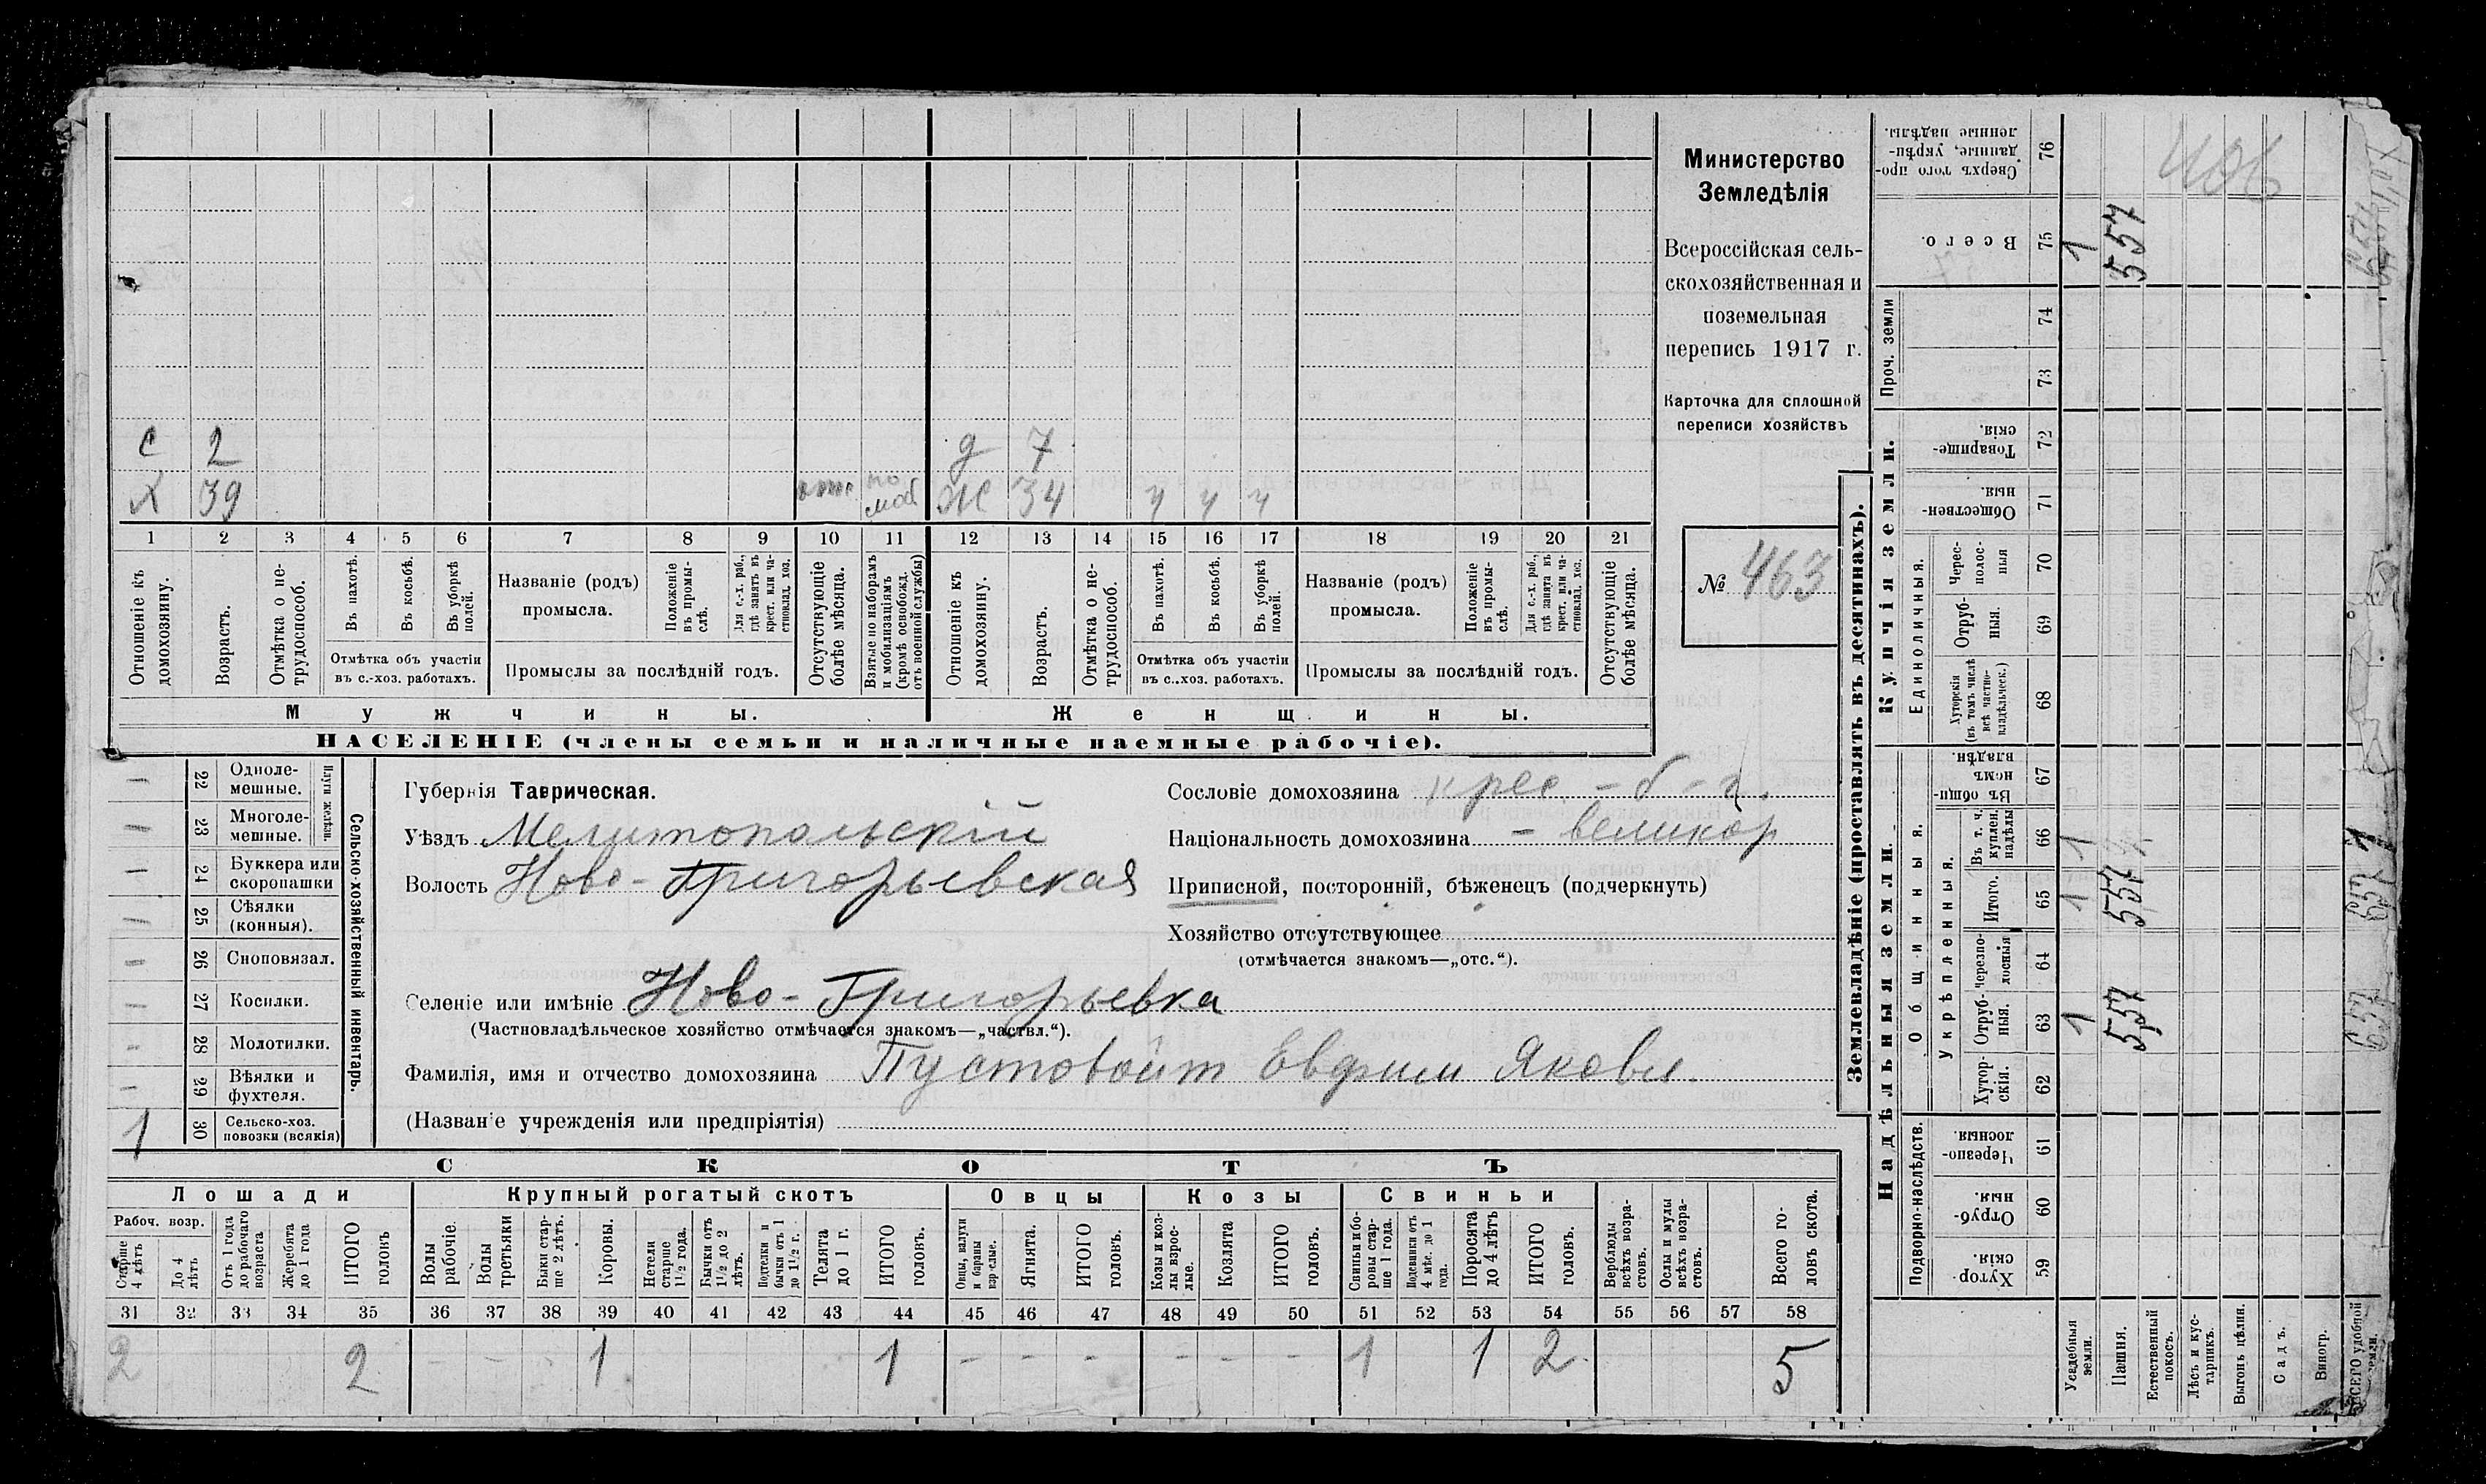 С 2 д 7
Х 39 отс по моб Ж 34 ч ч ч
1 2 3 4 5 6 7 8 9 10 11 12 13 14 15 16 17 18 19 20 21
Отношеніе къ домохозяину.
Возрастъ.
Отмѣтка о не-трудоспособ.
Въ пахотѣ.
Въ косьбѣ.
Въ уборкѣ полей.
Отмѣтка объ участіи
въ с.-хоз. работахъ.
Названіе (родъ)
промысла.
Положеніе въ промы-слѣ.
Для с.-х. раб., гдѣ занятъ въ крест. или ча-стновлад. хоз.
Промыслы за послѣдній годъ.
Отсутствующіе болѣе мѣсяца.
Взятые по наборамъ и мобилизаціямъ (кромѣ освобожд. отъ военной службы)
Отношеніе къ домохозяину.
Возрастъ.
Отмѣтка о не-трудоспособ.
Въ пахотѣ.
Въ косьбѣ.
Въ уборкѣ полей.
Отмѣтка объ участіи
въ с..хоз. работахъ.
Названіе (родъ)
промысла.
Положеніе въ промы-слѣ.
Для с.-х. раб., гдѣ занята въ крест. или ча-стновлад. хоз.
Промыслы за послѣдній годъ.
Отсутствующіе болѣе мѣсяца.
Мужчины.
Женщины.
НАСЕЛЕНІЕ (члены семьи и наличные наемные рабочіе).
Министерство
Земледѣлія
Всероссійская сель-
скохозяйственная и
поземельная
перепись 1917 г.
Карточка для сплошной
переписи хозяйствъ
№ 463
22 Одноле-мешные.
23 Многоле-мешные.
24 Буккера или скоропашки
25 Сѣялки (конныя).
26 Сноповязал.
27 Косилки.
28 Молотилки.
29 Вѣялки и фухтеля.
1 30 Сельско-хоз. повозки (всякія)
Сельско-хозяйственный инвентарь.
Губернія Таврическая.
Уѣздъ Мелитопольскій
Волость Ново-Григорьевская
Селеніе или имѣніе Ново-Григорьевка
(Частновладѣльческое хозяйство отмѣчается знакомъ—„частвл.“).
Фамилія, имя и отчество домохозяина Пустовойт Евфим Яковл.
(Названіе учрежденія или предпріятія)
Сословіе домохозяина крес.
Національность домохозяина - великор
Приписной, посторонній, бѣженецъ (подчеркнуть)
Хозяйство отсутствующее
(отмѣчается знакомъ—„отс.“).
СКОТЪ
Лошади
Крупный рогатый скотъ
Овцы
Козы
Свиньи
Рабоч. возр.
Старше 4 лѣтъ
До 4 лѣтъ
Отъ 1 года до рабочаго возраста
Жеребята до 1 года
ИТОГО головъ
Волы рабочіе.
Волы третьяки
Быки стар-ше 2 лѣтъ.
Коровы.
Нетели старше 1½ года.
Бычки отъ 1½ до 2 лѣтъ.
Подтелки и бычки отъ 1 до 1½ г.
Телята до 1 г.
ИТОГО головъ.
Овцы, валухи и бараны взрослые.
Ягнята.
ИТОГО головъ.
Козы и коз-лы взрос-лые.
Козлята
ИТОГО головъ.
Свиньи и бо-ровы стар-ше 1 года.
Подсвинки отъ 4 мѣс. до 1 года.
Поросята до 4 лѣтъ
ИТОГО головъ.
Верблюды всѣхъ возра-стовъ.
Ослы и мулы всѣхъ возра-стовъ.
Всего го-ловъ скота.
31 32 33 34 35 36 37 38 39 40 41 42 43 44 45 46 47 48 49 50 51 52 53 54 55 56 57 58
2 2 - - - 1 1 - - - - - - 1 1 2 5
Землевладѣніе (проставлять въ десятинахъ).
Купчія земли.
Надѣльныя земли.
Проч. земли
Единоличныя.
Общинныя.
Укрѣпленныя.
Подворно-наслѣдств.
Сверхъ того про-данные, укрѣп-ленные надѣлы. 76
Всего. 75 1 557
74
73
Товарище-скія. 72
Обществен-ныя. 71
Черес-полос-ныя 70
Отруб-ныя. 69
Хуторскія (въ томъ числѣ всѣ частно-владѣльческ.) 68
Въ общи-номъ владѣн. 67
Въ т. ч. куплен. надѣлы 66 1
Итого. 65 1 557
Черезпо-лосныя 64
Отруб-ныя. 63 1 557
Хутор-скія. 62
Черезпо-лосныя. 61
Отруб-ныя. 60
Хутор-скія. 59
Усадебныя земли.
Пашня.
Естественный покосъ.
Лѣсъ и кус-тарникъ.
Выгонъ цѣлин.
Садъ.
Виногр.
ВСЕГО удобной земли.